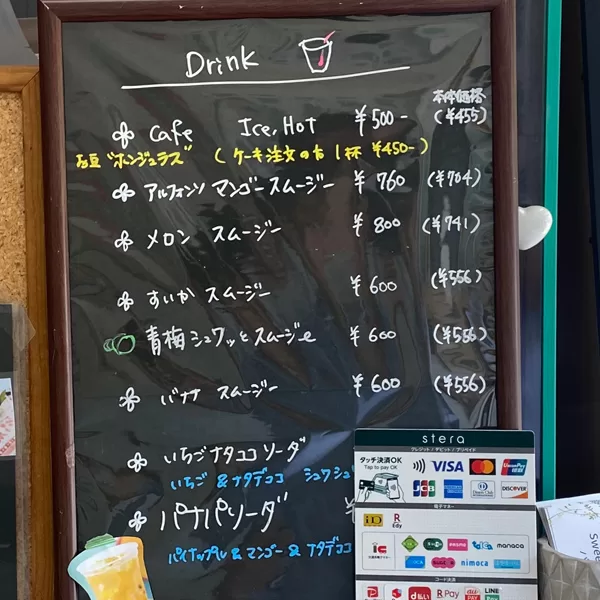 Drink
本体価格
Cafe Ice, Hot ¥500- (¥455)
豆 "ホンジュラス" (ケーキ注文の方 1杯 ¥450-)
アルフォンソ マンゴースムージー ¥760 (¥704)
メロン スムージー ¥800 (¥741)
すいか スムージー ¥600 (¥556)
青梅シュワッとスムージー ¥600 (¥556)
バナナ スムージー ¥600 (¥556)
いちごナタココソーダ
いちご & ナタデココ シュワシュ
パナパソーダ ¥
パイナップル & マンゴー & ナタデココ
stera
クレジット / デビット / プリペイド
タッチ決済OK
Tap to pay OK
VISA
mastercard
UnionPay
銀联
JCB
Diners Club
DISCOVER
電子マネー
iD
R Edy
ic
manaca
nimoca
コード決済
d払い
R Pay
au PAY
LINE
Swee